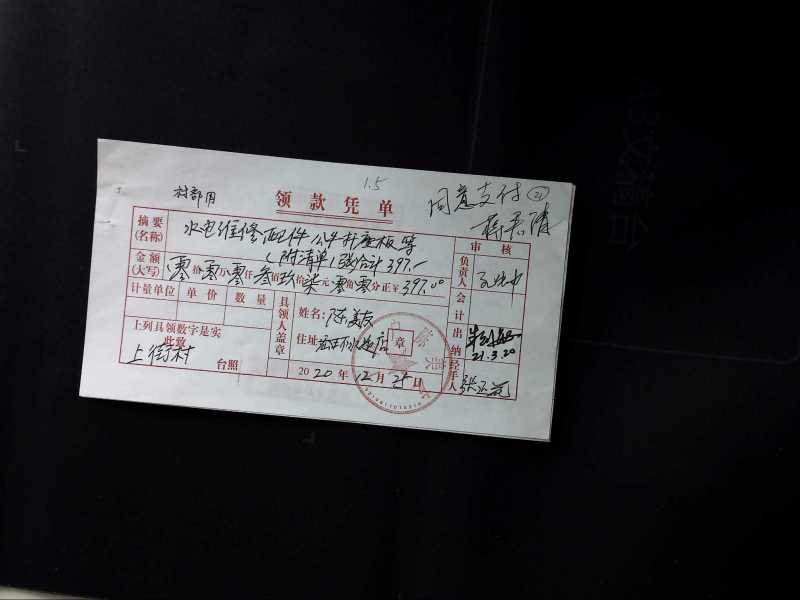 1.5
村部用
领款凭单
同意支付 21
摘要(名称) 水电维修配件 公牛插座板等
(附清单1张合计397.-
审核
金额(大写) 零拾零万零仟叁佰玖拾柒元零角零分正¥397.00
负责人
计量单位 单价 数量
会计
具领人盖章
姓名: 陈
上列具领数字是实
此致
住址: 店
章
出纳
21.3.20
上街村 台照
2020年12月25日
经手人 张